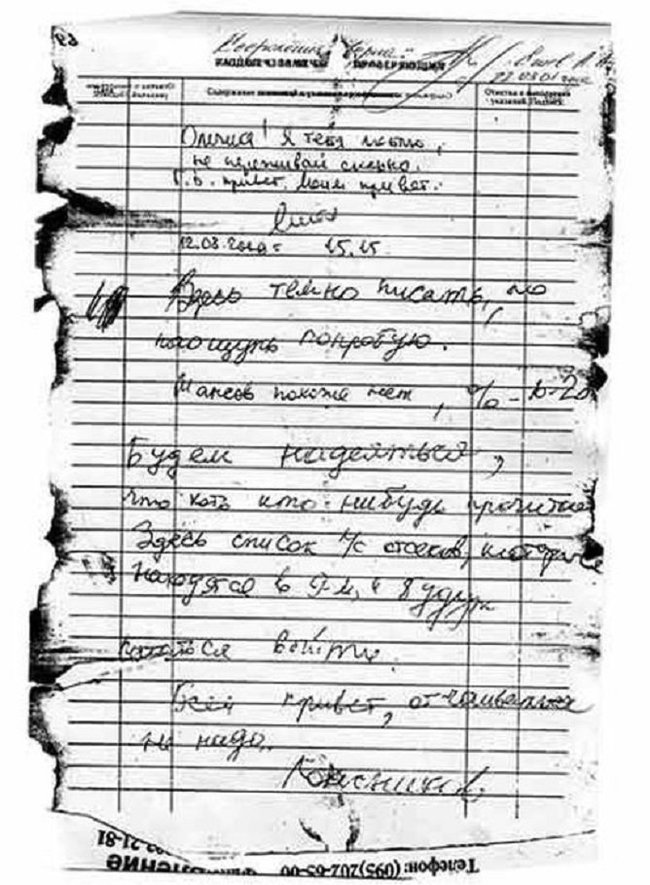 Олечка! Я тебя люблю,
не переживай сильно.
Г.В. привет. Моим привет.
12.08.2000г 15.15
Здесь темно писать, но
наощупь попробую.
Шансов похоже нет, % - 10-20
Будем надеяться,
что хоть кто-нибудь прочитает
Здесь список л/с отсеков, которые
находятся в 9-м, и будут
пытаться выйти.
Всем привет, отчаиваться
не надо.
Колесников
21-81
Телефон: (095)202-65-00